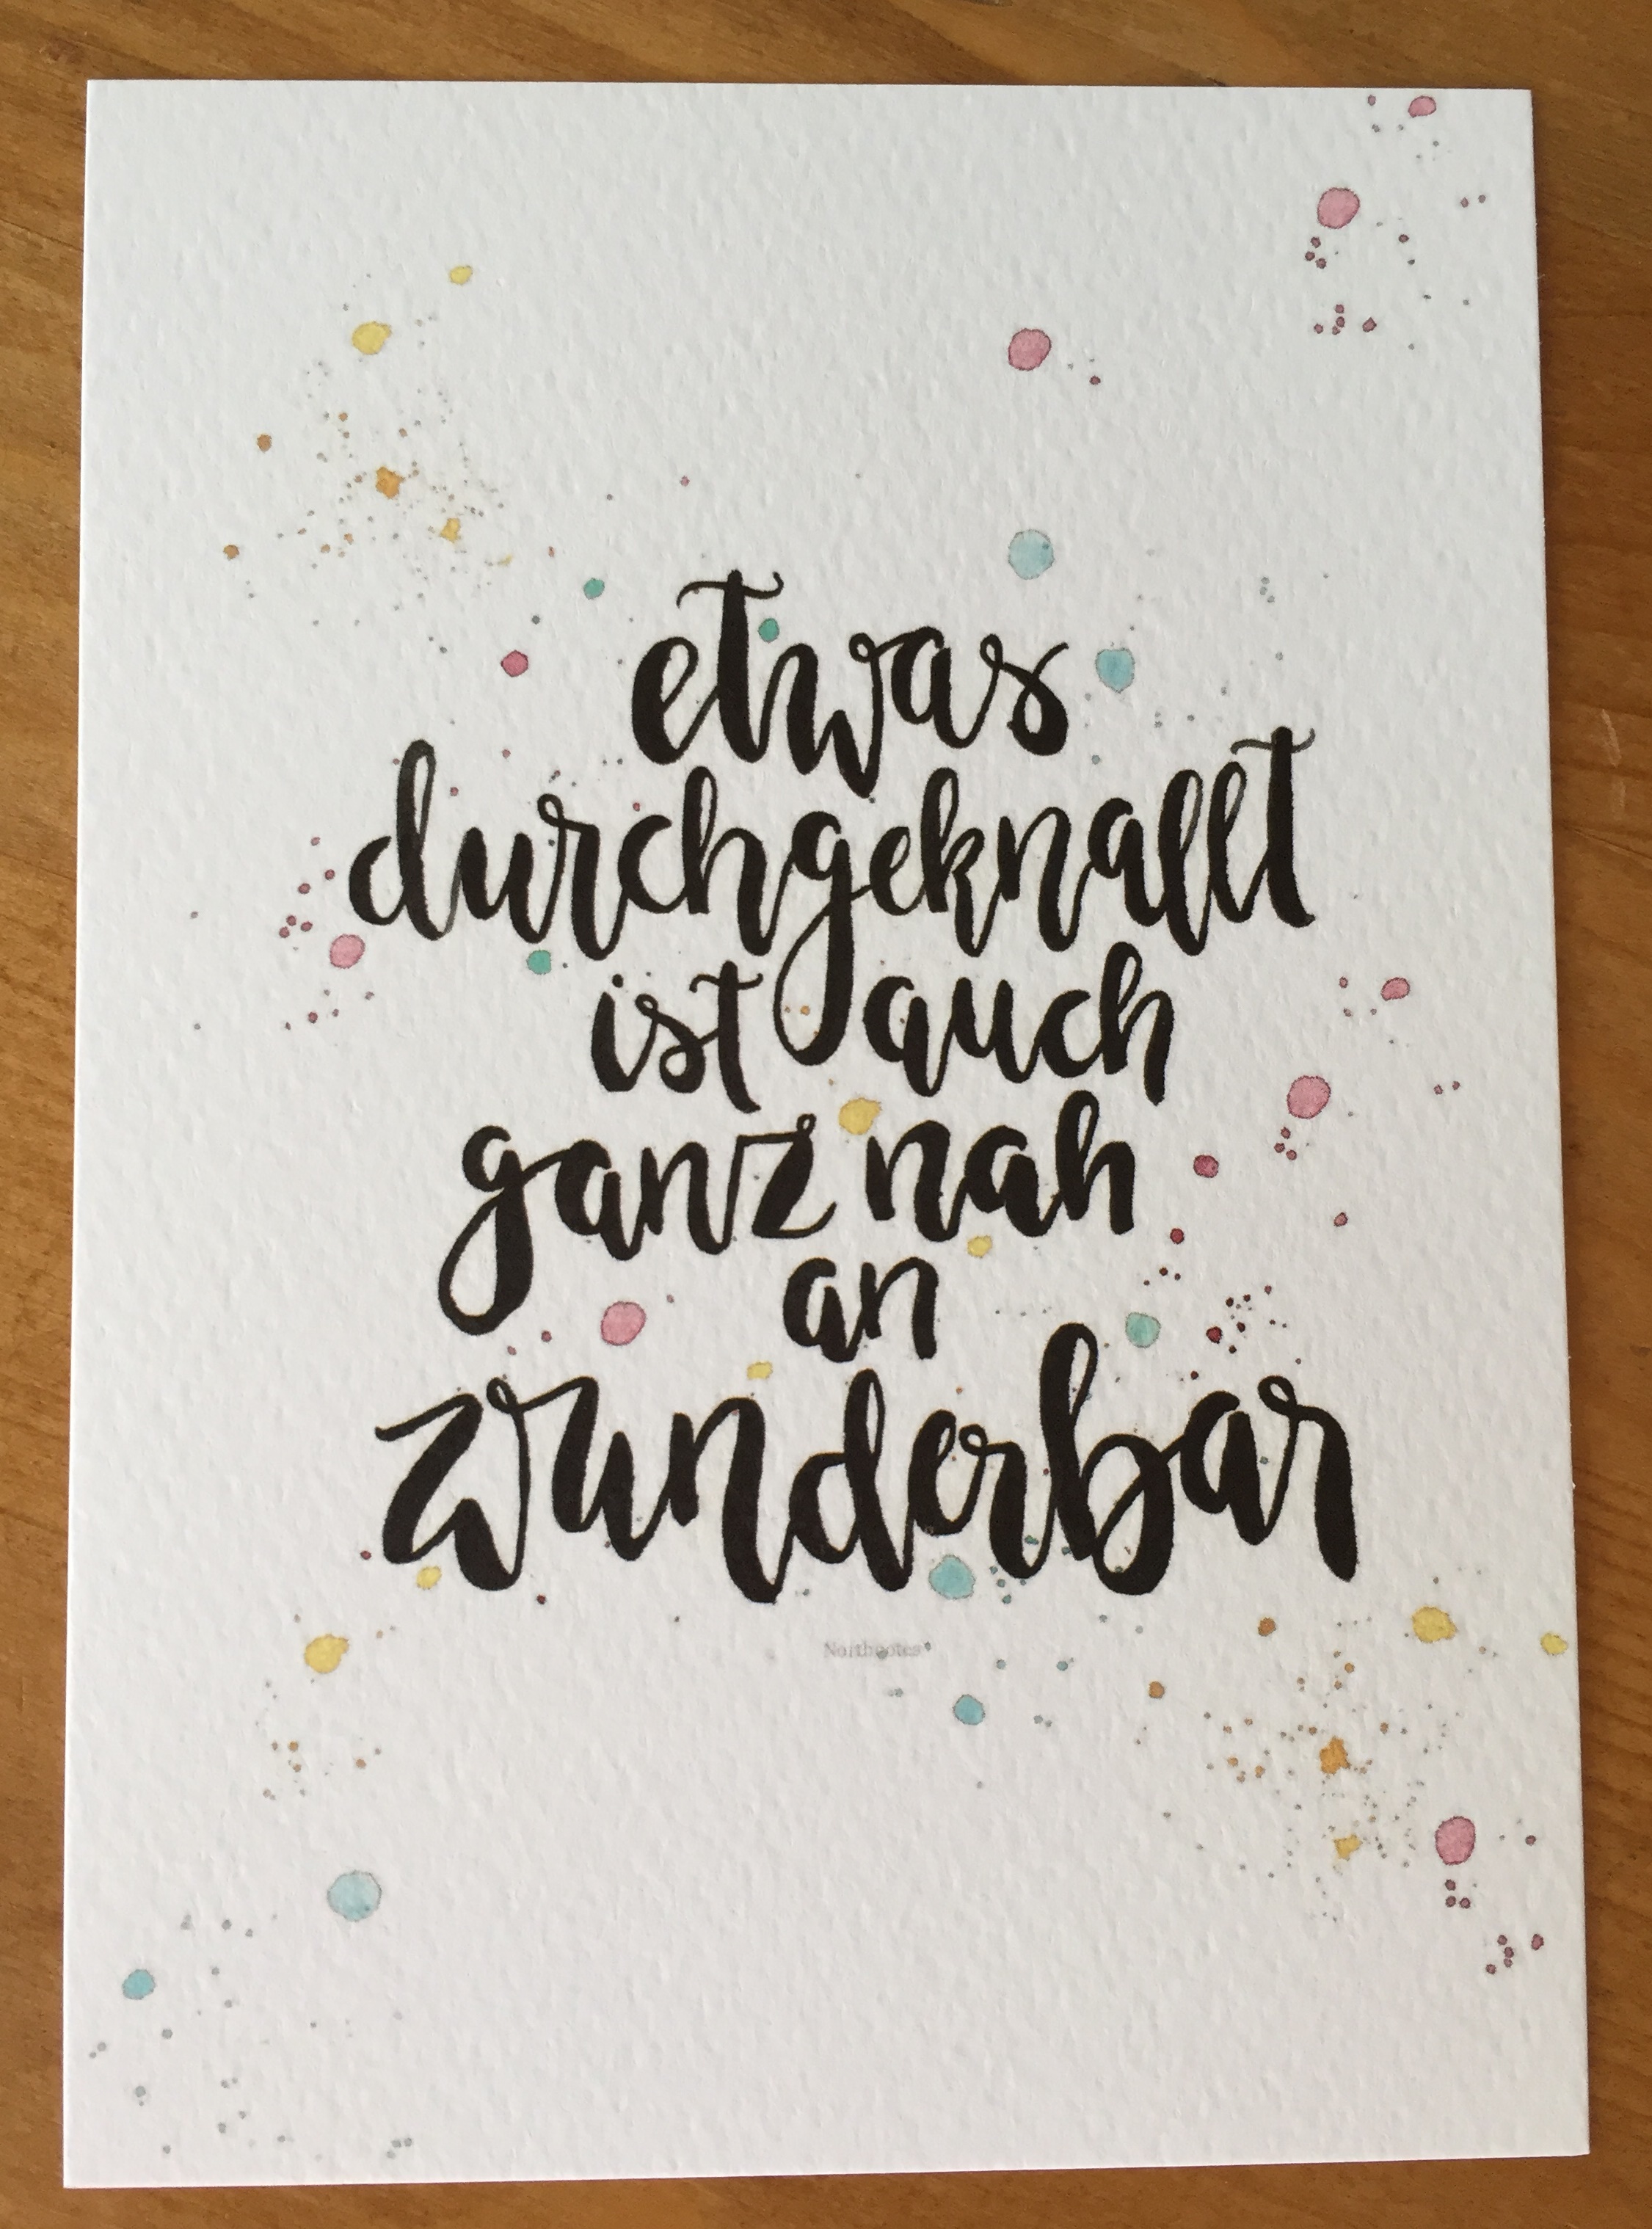 etwas
durchgeknallt
ist auch
ganz nah
an
wunderbar
Northnotes